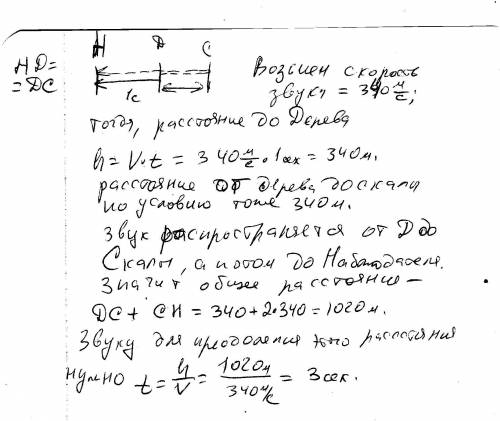 Н Д С
НД=
=ДС
1с
Возьмем скорость
звука = 340 м/с;
тогда, расстояние до Дерева
h = V·t = 340 м/с · 1сек = 340 м.
расстояние от дерева до скалы
по условию тоже 340 м.
Звук распространяется от Д до
Скалы, а потом до Наблюдателя.
Значит общее расстояние –
ДС + СН = 340 + 2·340 = 1020 м.
Звуку для преодоления этого расстояния
нужно t = h/V = 1020м/340м/с = 3 сек.